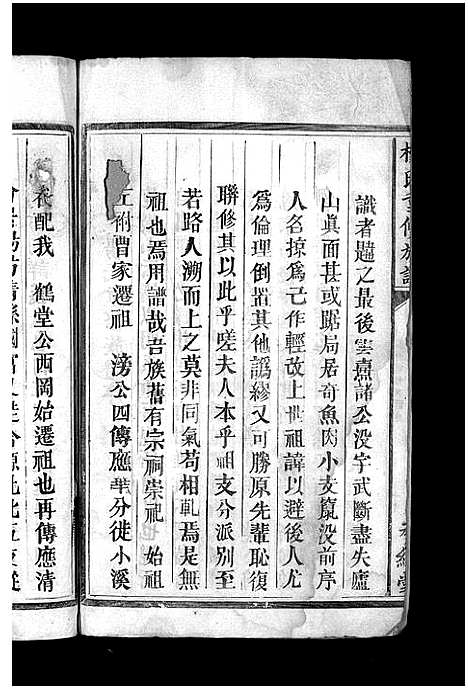 識者韙之最後雲熹諸公没字武斷盡失廬
山眞面甚或踞局居奇魚肉小支篡没前序
人名掠爲己作輕改上世祖諱以避後人尤
爲倫理倒置其他譌繆又可勝原先輩恥復
聯修其以此乎嗟夫人本乎祖支分派別至
若路人溯而上之莫非同氣苟相軋焉是無
祖也焉用譜哉吾族舊有宗祠崇祀 始祖
祔曹家遷祖 滂公四傳應華分徙小溪
衣配我 鶴堂公西岡始遷祖也再傳應清